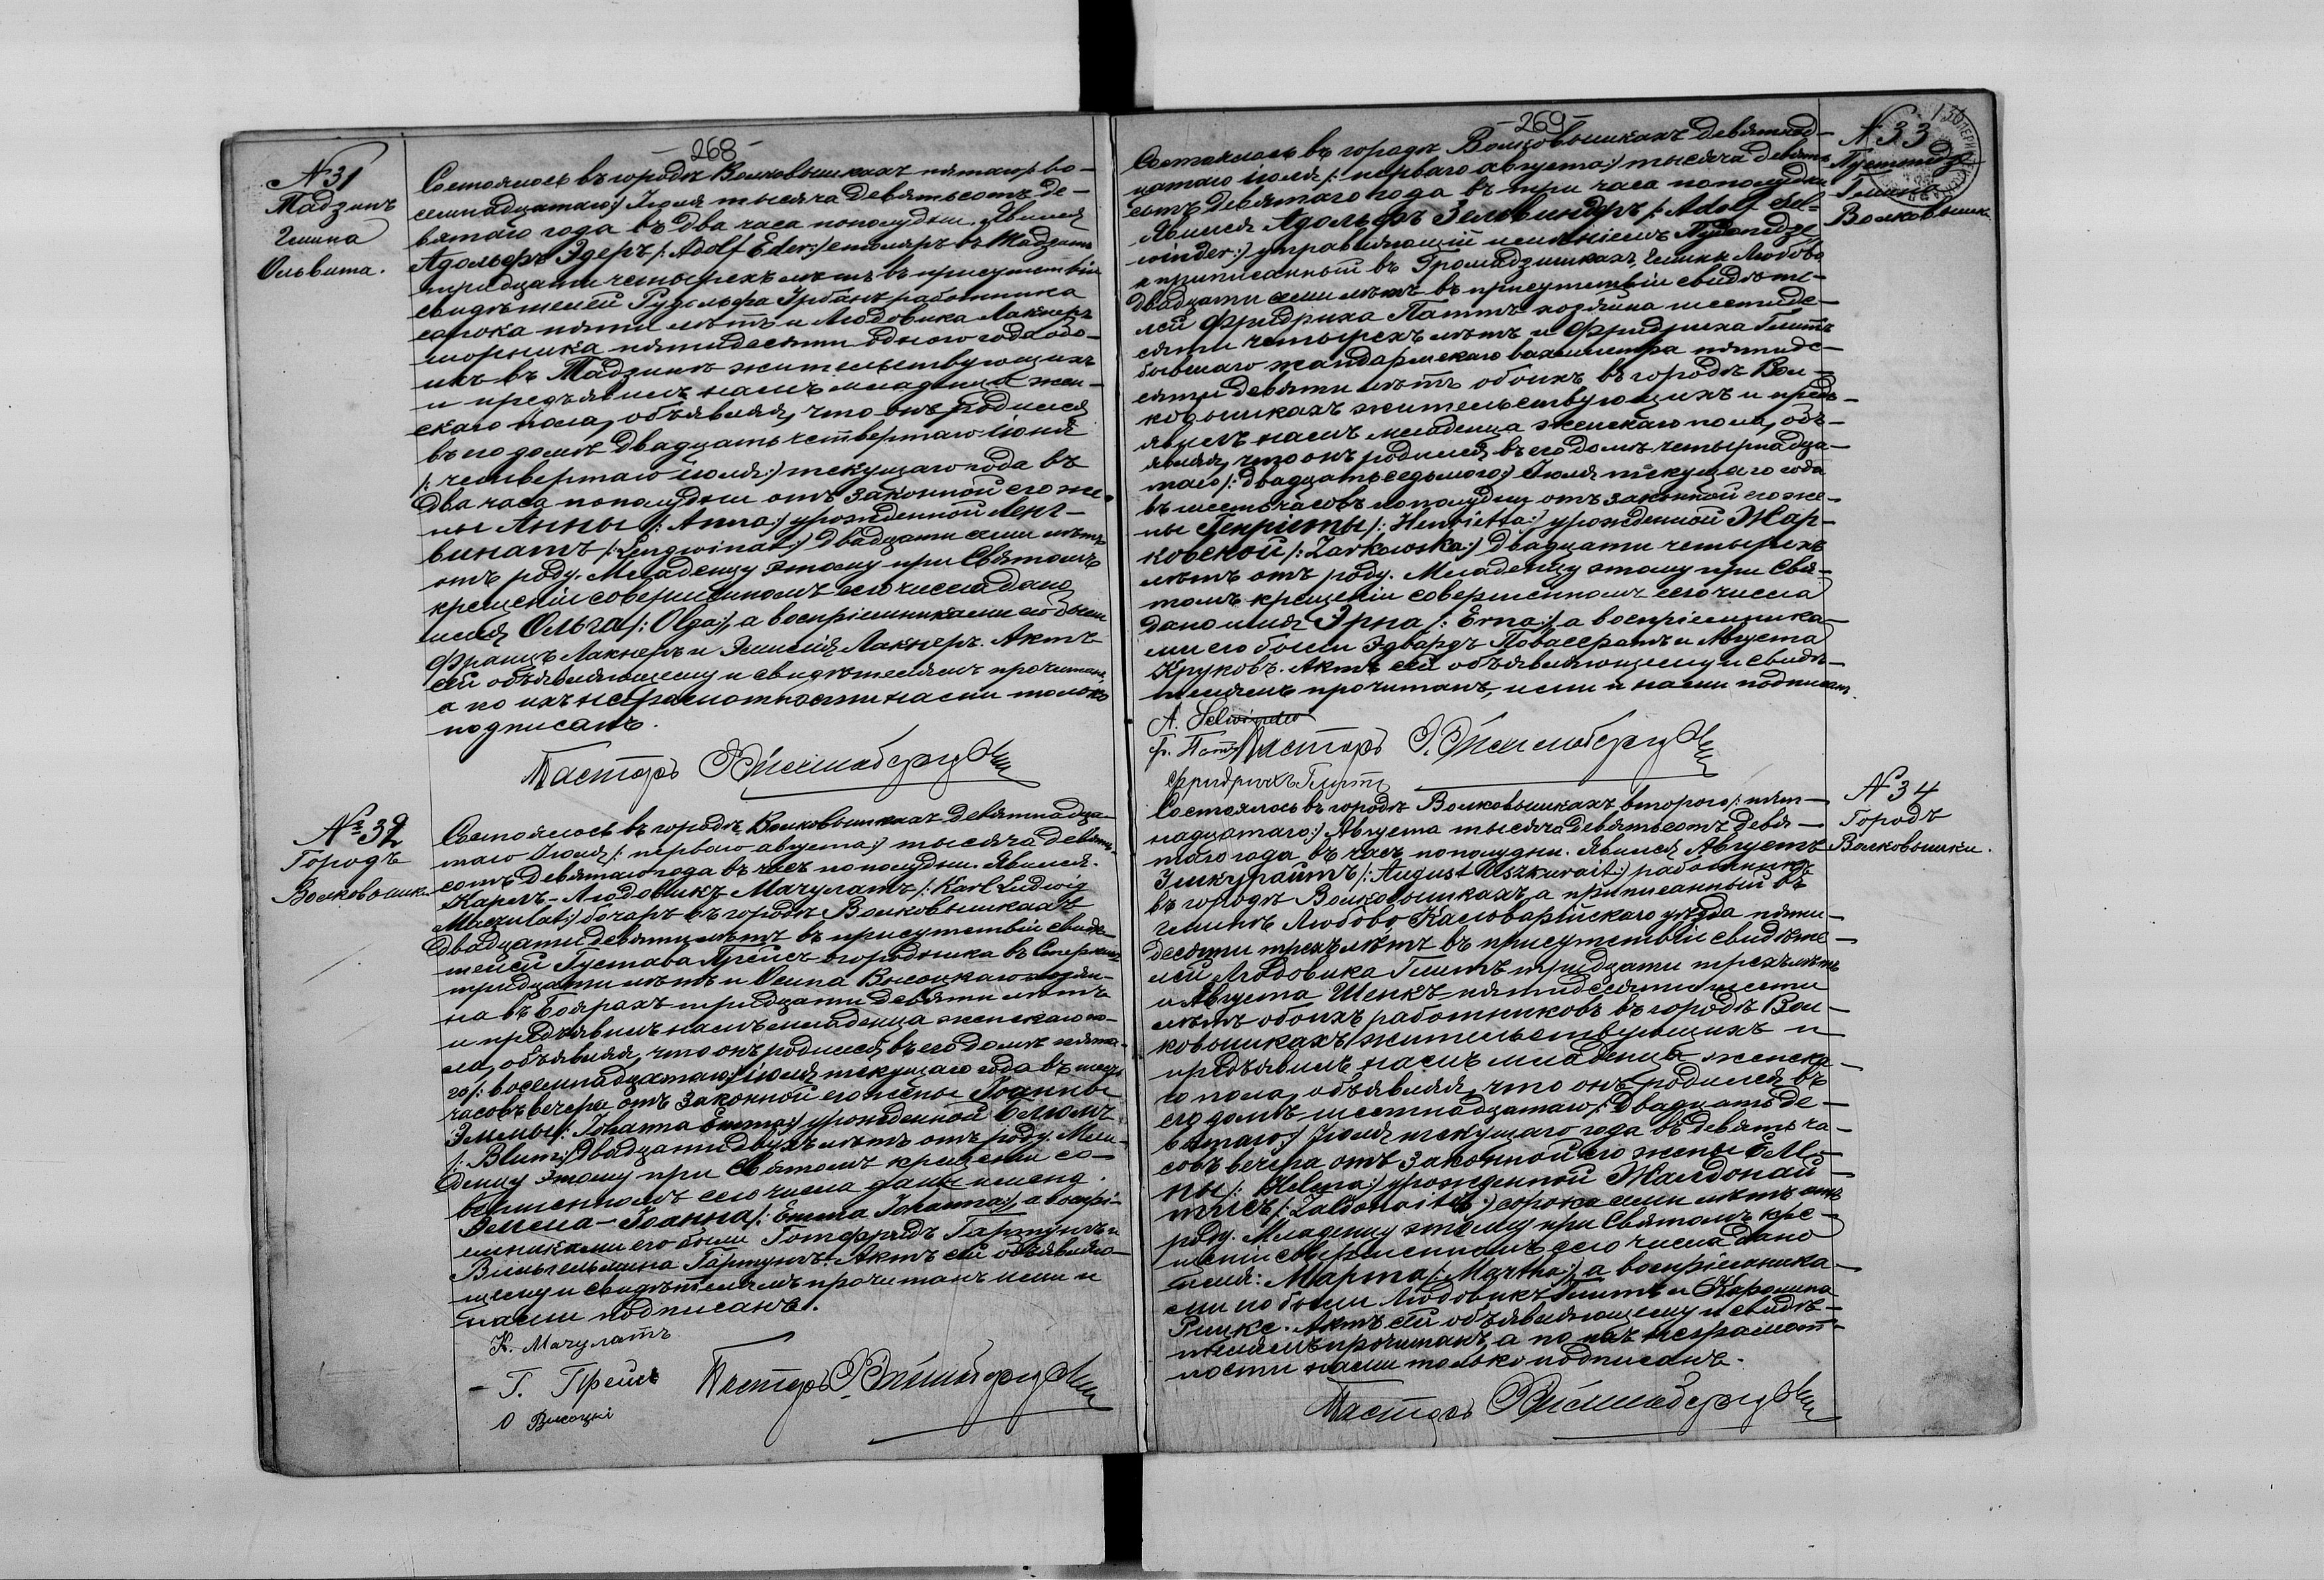 268
№ 31
Мадзинъ
Гмина
Ольвита.
Состоялось въ городѣ Волковышкахъ пятаго /: во-
семнадцатаго:/ Іюля тысяча девятьсотъ де-
вятаго года въ два часа пополудни. Явился
Адольфъ Эдеръ /: Adolf Eder:/ столяръ въ Мадзинѣ
тридцати четырехъ лѣтъ въ присутствіи
свидѣтелей Рудольфа Урбанъ работника
сорока пяти лѣтъ и Людовика Лакнеръ
пятидесяти одного года обо-
ихъ въ Мадзинѣ жительствующихъ
и предъявилъ намъ младенца жен-
скаго пола, объявляя, что онъ родился
въ его домѣ двадцать четвертаго Іюня
/: четвертаго Іюля:/ текущаго года въ
два часа пополудни отъ законной его же-
ны Анны /: Anna:/ урожденной Ленг-
винатъ /: Lengwinat:/ двадцати семи лѣтъ
отъ роду. Младенцу этому при Святомъ
крещеніи совершенномъ сего числа дано
имя Ольга /: Olga:/, а воспріемниками его были
Францъ Лакнеръ и Эмилія Лакнеръ. Актъ
сей объявляющему и свидѣтелямъ прочитанъ,
а по ихъ неграмотности нами только
подписанъ.
Пасторъ
№ 32
Городъ
Волковышки
Состоялось въ городѣ Волковышкахъ девятнадца-
таго Іюля /: перваго августа:/ тысяча девять-
сотъ девятаго года въ часъ пополудни. Явился
Карлъ-Людовикъ Мачулатъ /: Karl Ludwig
Maczulat:/ бочаръ въ городѣ Волковышкахъ
двадцати девяти лѣтъ въ присутствіи свидѣ-
телей Густава Прейсъ огородника въ
тридцати лѣтъ и Осипа Высоцкаго хозяи-
на въ Боярахъ тридцати девяти лѣтъ
и предъявилъ намъ младенца женскаго по-
ла, объявляя, что онъ родился въ его домѣ пята-
го /: восемнадцатаго:/ Іюля текущаго года въ шесть
часовъ вечера отъ законной его жены Іоанны
Эммы /: Johanna Emma:/ урожденной Блюмъ
/: Blum:/ двадцати двухъ лѣтъ отъ роду. Мла-
денцу этому при Святомъ крещеніи со-
вершенномъ сего числа даны имена
Эмма-Іоанна /: Emma Johanna:/, а воспрі-
емниками его были Готфридъ Гартунъ и
Вильгельмина Гартунъ. Актъ сей объявляю-
щему и свидѣтелямъ прочитанъ ими и
нами подписанъ.
К. Мачулатъ
Г. Прейсъ
О Високці
Пасторъ
-269-
№ 33
Гмина
Волковышки
Состоялось въ городѣ Волковышкахъ девятнад-
цатаго Іюля /: перваго августа:/ тысяча девять-
сотъ девятаго года въ три часа пополудни
Явился Адольфъ Зельвиндеръ /: Adolf Sel-
winder:/ управляющій имѣніемъ
а приписанный въ Громадзишкахъ, гмины Любово
двадцати семи лѣтъ въ присутствіи свидѣте-
лей Фридриха Паттъ хозяина шестиде-
сяти четырехъ лѣтъ и Фридриха Глитъ
бывшаго жандармскаго вахмистра пятиде-
сяти девяти лѣтъ обоихъ въ городѣ Вол-
ковышкахъ жительствующихъ и предъ-
явилъ намъ младенца женскаго пола, объ-
являя, что онъ родился въ его домѣ четырнадца-
таго /: двадцать седьмого:/ Іюля текущаго года
въ шесть часовъ пополудни отъ законной его же-
ны Генріетты /: Henrietta:/ урожденной Жар-
ковской /: Zarkowska:/ двадцати четырехъ
лѣтъ отъ роду. Младенцу этому при Свя-
томъ крещеніи совершенномъ сего числа
дано имя Эрна /: Erna:/, а воспріемника-
ми его были Эдвардъ Повассератъ и Августа
Круковъ. Актъ сей объявляющему и свидѣ-
телямъ прочитанъ, ими и нами подписанъ.
A. Selwinder
Ф. Патъ Пасторъ
Фридрихъ Глитъ
№ 34
Городъ
Волковышки.
Состоялось въ городѣ Волковышкахъ второго /: пят-
надцатаго:/ Августа тысяча девятьсотъ девя-
таго года въ часъ пополудни. Явился Августъ
Ушкурайтъ /: August Uszkurait:/ работникъ
въ городѣ Волковышкахъ, а приписанный въ
гминѣ Любово, Кальварійскаго уѣзда пяти-
десяти трехъ лѣтъ въ присутствіи свидѣте-
лей Людовика Глитъ тридцати трехъ лѣтъ
и Августа Шенкъ пятидесяти шести
лѣтъ обоихъ работниковъ въ городѣ Вол-
ковышкахъ жительствующихъ и
предъявилъ намъ младенца женска-
го пола, объявляя, что онъ родился въ
его домѣ шестнадцатаго /: двадцать де-
вятаго:/ Іюля текущаго года въ девять ча-
совъ вечера отъ законной его жены Еле-
ны /: Helena:/ урожденной Жалдонай-
тисъ /: Zaldonaitis:/ сорока семи лѣтъ отъ
роду. Младенцу этому при Святомъ кре-
щеніи совершенномъ сего числа дано
имя: Марта /: Martha:/, а воспріемника-
ми его были Людовикъ Глитъ и Каролина
Римкс. Актъ сей объявляющему и свидѣ-
телямъ прочитанъ, а по ихъ неграмот-
ности нами только подписанъ.
Пасторъ